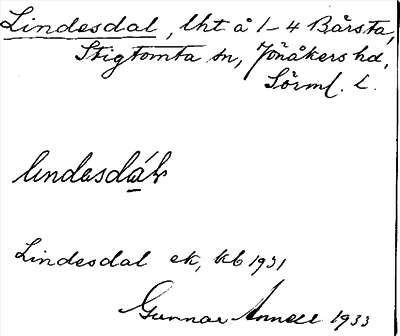 Lindesdal, lht å 1-4 Bårsta,
Stigtomta sn, Jönåkers hd,
Sörml. L.
lindesdáls
Lindesdal ek, kb 1931
Gunnar Annell 1933